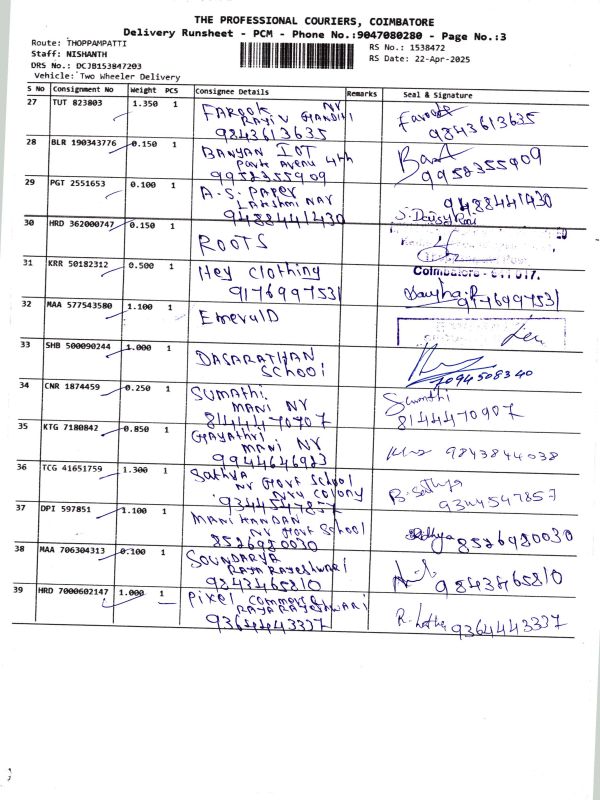 THE PROFESSIONAL COURIERS, COIMBATORE
Delivery Runsheet - PCM - Phone No.:9047080280 - Page No.:3
Route: THOPPAMPATTI
RS No.: 1538472
Staff: NISHANTH
RS Date: 22-Apr-2025
DRS No.: DCJB153847203
Vehicle: Two Wheeler Delivery
S No Consignment No Weight PCS Consignee Details Remarks Seal & Signature
27 TUT 823803 1.350 1 FAROOK NV
RAJIV GANDHI
9843613635 9843613635
28 BLR 190343776 0.150 1 BANYAN IOT
Park Avenu 4th
9952355909 9952355909
29 PGT 2551653 0.100 1 A.S. PAPER
LAKSHMI NAR 9488441430
9488441430 J. Daisy Rani
30 HRD 362000747 0.150 1
ROOTS
31 KRR 50182312 0.500 1 Hey Clothing Coimbatore - 641 017.
9176997531 9176997531
32 MAA 577543580 1.100 1
EmeralD
33 SHB 500090244 1.000 1 DASARATHAN
SCHOOL
7094508340
34 CNR 1874459 0.250 1 SUMATHI Sumathi
MANI NV
8144470707 8144470907
35 KTG 7180842 0.850 1 GAYATHRI
MANI NV 9843844038
9944646983
36 TCG 41651759 1.300 1 Sathya B. Sathya
NV Govt School
NVN Colony
9344547857 9344547857
37 DPI 597851 1.100 1 MANIKANDAN
NV Govt School
8526980030 8526980030
38 MAA 706304313 0.100 1 SOUNDARYA
RAYA RAYESHWARI
9843465810 9843465810
39 HRD 7000602147 1.000 1 Pixel Commerce
RAYA RAYESHWARI R. Latha
9364443337 9364443337